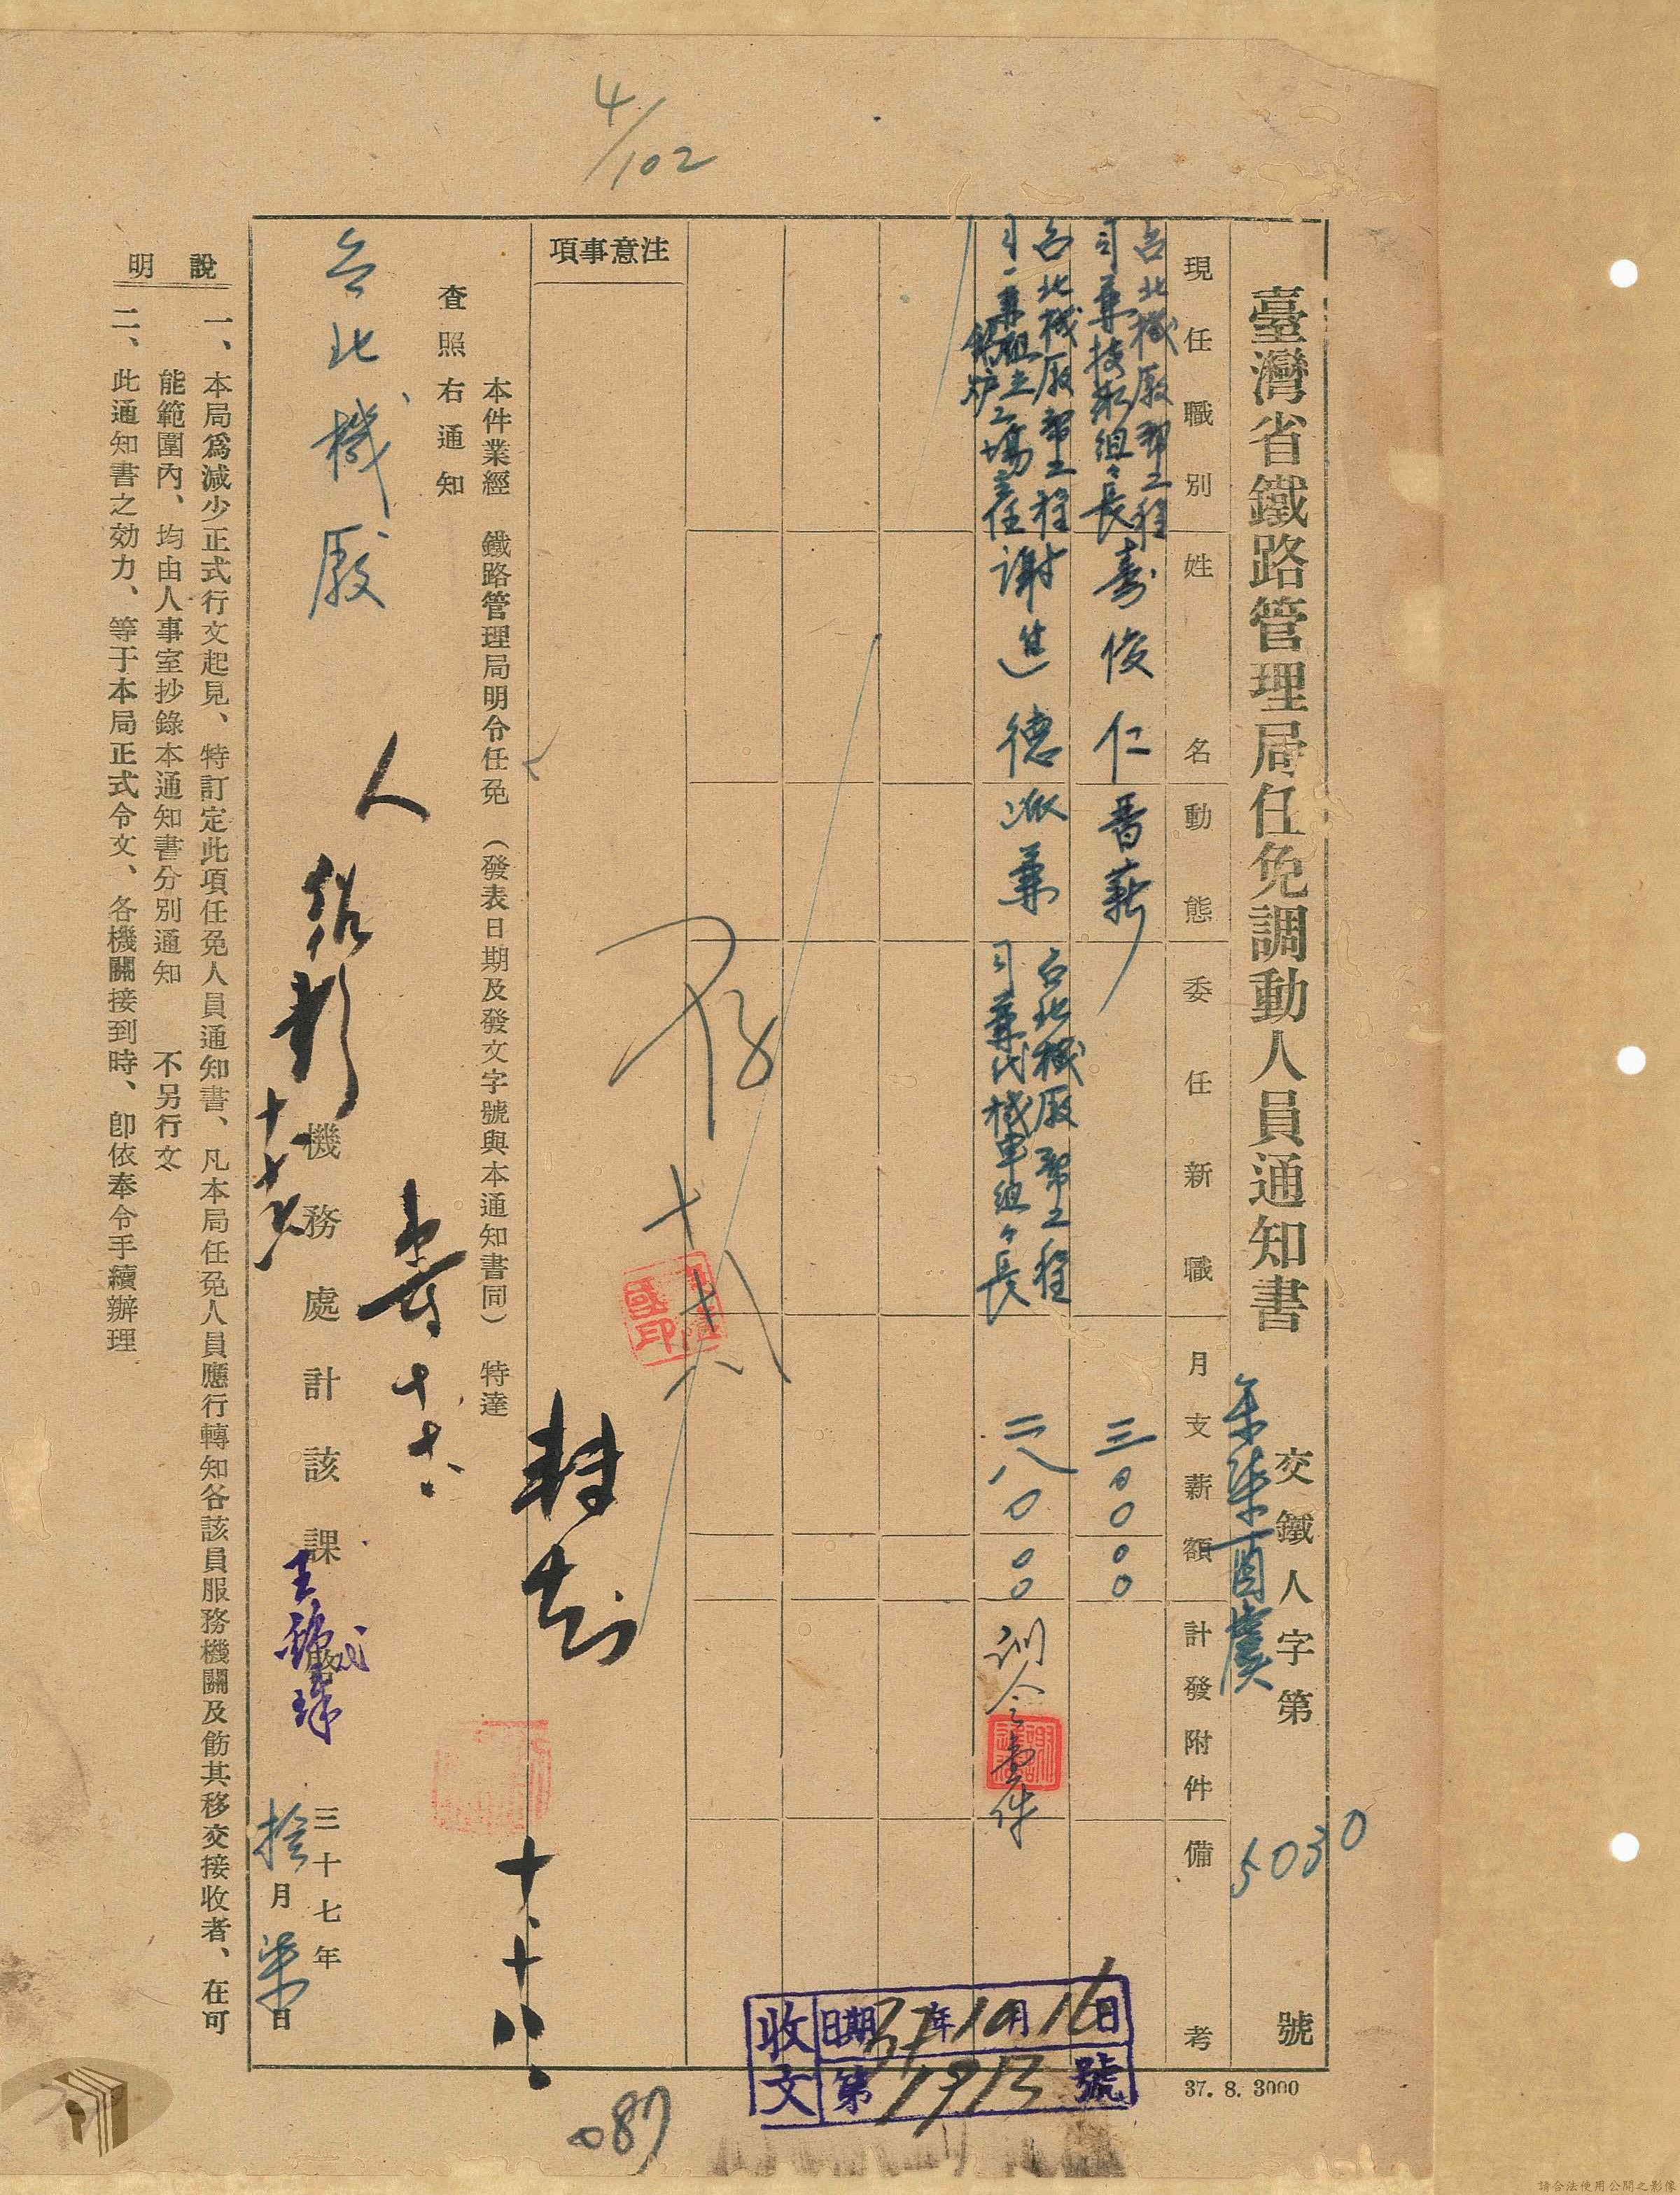 4/102
臺灣省鐵路管理局任免調動人員通知書
交鐵人字第 5030 號
現任職別
姓名
動態
委任新職
月支薪額
計發附件
備考
台北機厰幫工程
司兼技術組々長
壽俊仁
晋薪
三〇〇〇〇
台北機厰幫工程
司兼組立工場主任
鍋炉
謝進德
派兼
台北機厰幫工程
司兼代機車組々長
二八〇〇〇
訓令壹件
注意事項
存
本件業經 鐵路管理局明令任免 (發表日期及發文字號與本通知書同) 特達
查照右通知
台北機厰
人
壽
十、十八、
機務處計該課
三十七年
拾月柒日
說明
一、本局爲減少正式行文起見、特訂定此項任免人員通知書、凡本局任免人員應行轉知各該員服務機關及飭其移交接收者、在可
能範圍內、均由人事室抄錄本通知書分別通知 不另行文
二、此通知書之効力、等于本局正式令文、各機關接到時、卽依奉令手續辦理
收文
日期 37年10月16日
第1913號
37. 8. 3000
087
請合法使用公開之影像